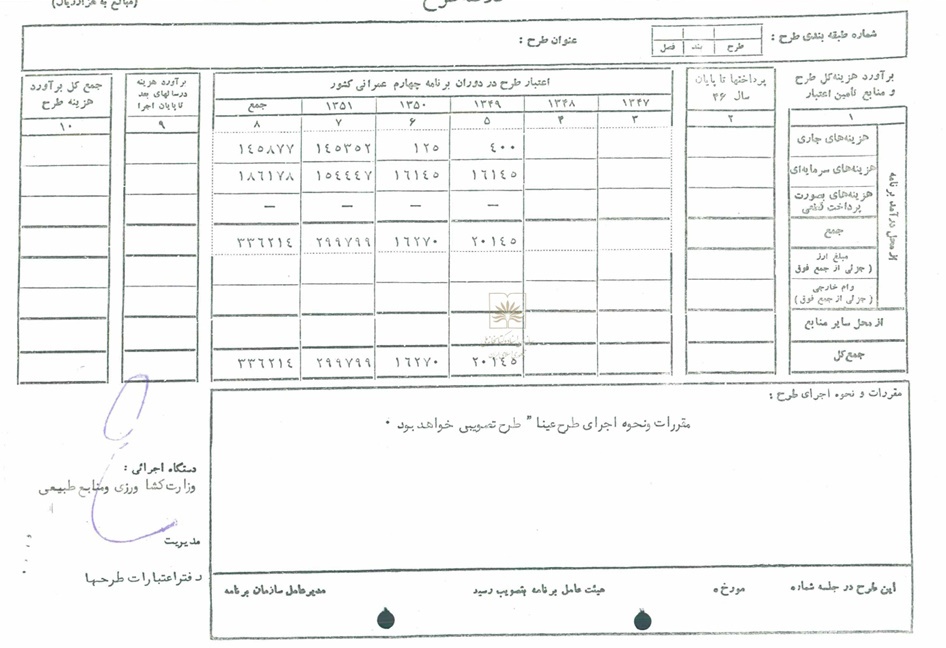 (مبالغ به هزار ریال)
خلاصه طرح
شماره طبقه بندی طرح :
طرح بند فصل
عنوان طرح :
برآورد هزینه کل طرح و منابع تأمین اعتبار
پرداختها تا پایان سال ۴۶
اعتبار طرح در دوران برنامه چهارم عمرانی کشور
برآورد هزینه درسالهای بعد تا پایان اجرا
جمع کل برآورد هزینه طرح
۱۳۴۷ ۱۳۴۸ ۱۳۴۹ ۱۳۵۰ ۱۳۵۱ جمع
۱ ۲ ۳ ۴ ۵ ۶ ۷ ۸ ۹ ۱۰
از محل درآمد برنامه
هزینه‌های جاری ٤٠٠ ١٢٥ ١٤٥٣٥٢ ١٤٥٨٧٧
هزینه‌های سرمایه‌ای ١٦١٤٥ ١٦١٤٥ ١٥٤٤٤٧ ١٨٦١٧٨
هزینه‌های بصورت پرداخت قطعی — — — —
جمع ٢٠١٤٥ ١٦٢٧٠ ٢٩٩٧٩٩ ٣٣٦٢١٤
مبلغ ارز
( جزئی از جمع فوق )
وام خارجی
( جزئی از جمع فوق )
از محل سایر منابع
جمع کل ٢٠١٤٥ ١٦٢٧٠ ٢٩٩٧٩٩ ٣٣٦٢١٤
مقررات و نحوه اجرای طرح :
مقررات ونحوه اجرای طرح عینا" طرح تصویبی خواهد بود .
دستگاه اجرائی :
وزارت کشاورزی ومنابع طبیعی
مدیریت
دفتر اعتبارات طرحها
این طرح در جلسه شماره مورخه هیئت عامل برنامه بتصویب رسید مدیرعامل سازمان برنامه